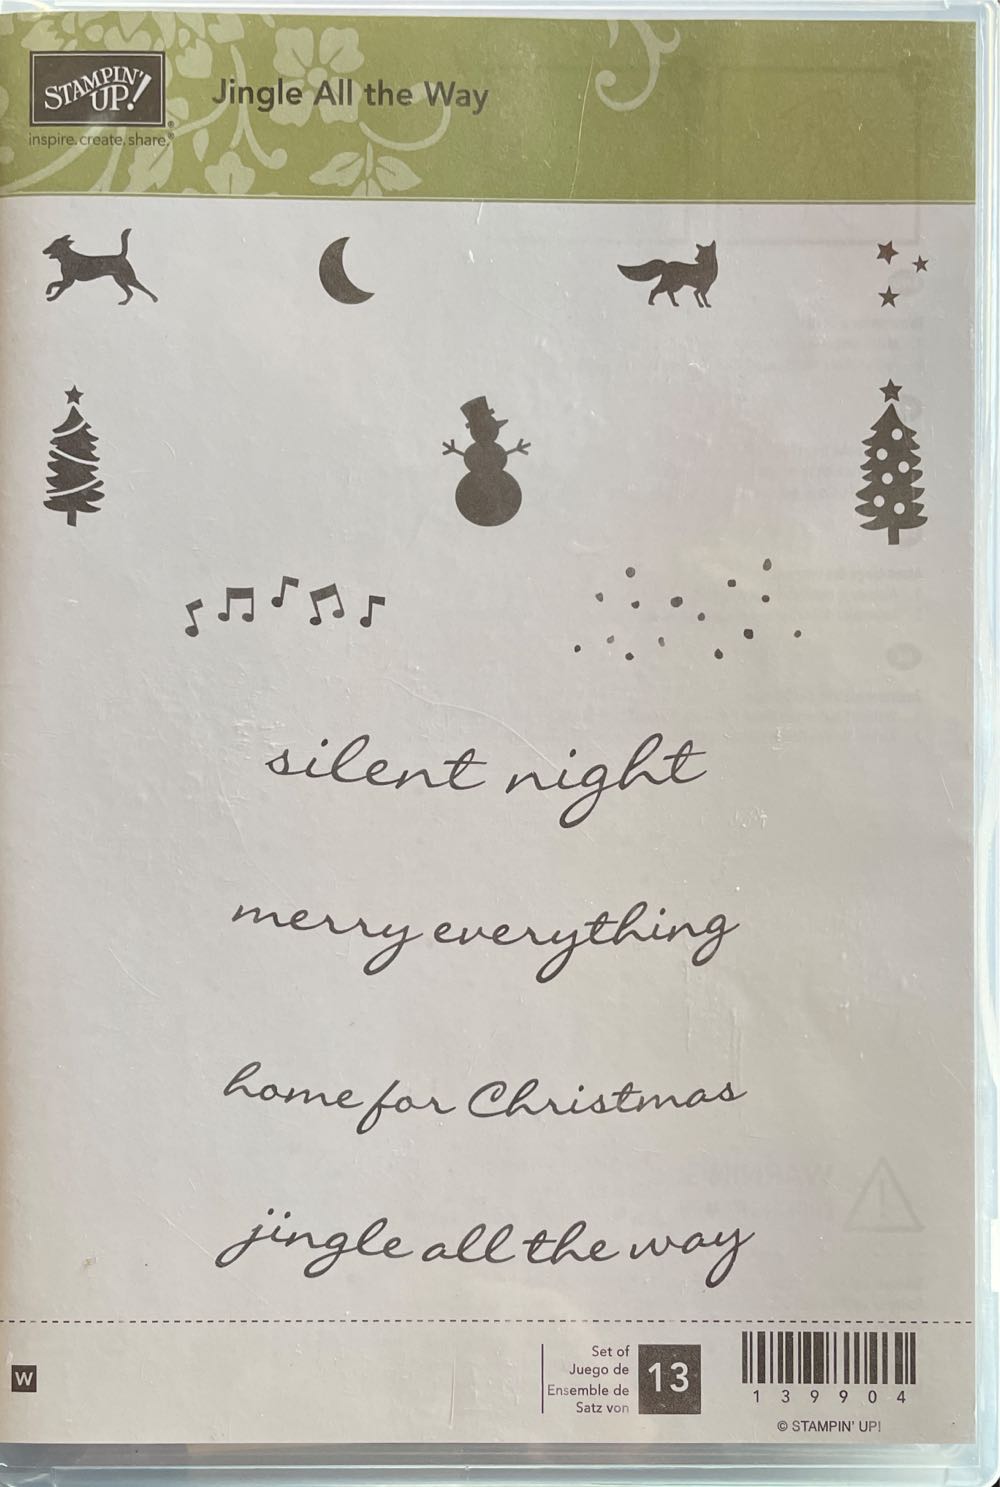 STAMPIN' UP!®
inspire.create.share.®
Jingle All the Way
silent night
merry everything
home for Christmas
jingle all the way
W
Set of
Juego de
Ensemble de
Satz von
13
139904
© STAMPIN' UP!